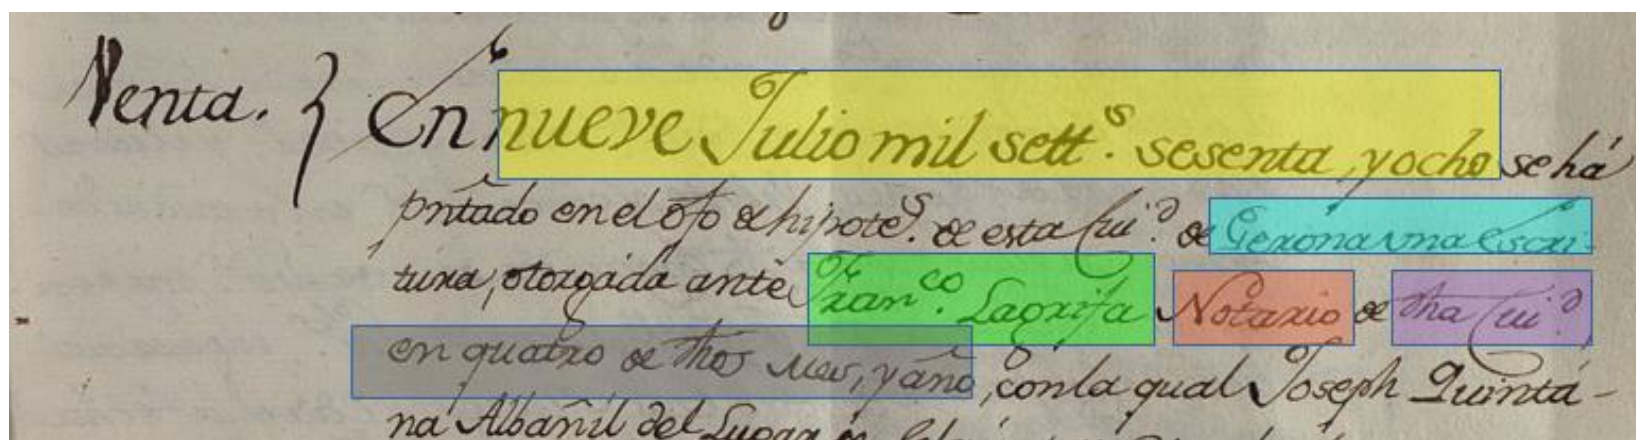 Venta. } En nueve Julio mil sett.s sesenta, yocho se há
pñtado en el ofo de hipote.s de esta Ciu.d de Gerona vna Escri-
tura, otorgada ante Fran.co Lagrifa Notario de dha Ciu.d
en quatro de dhos mes, y año, con la qual Joseph Quintá-
na Albañil del Lugar de